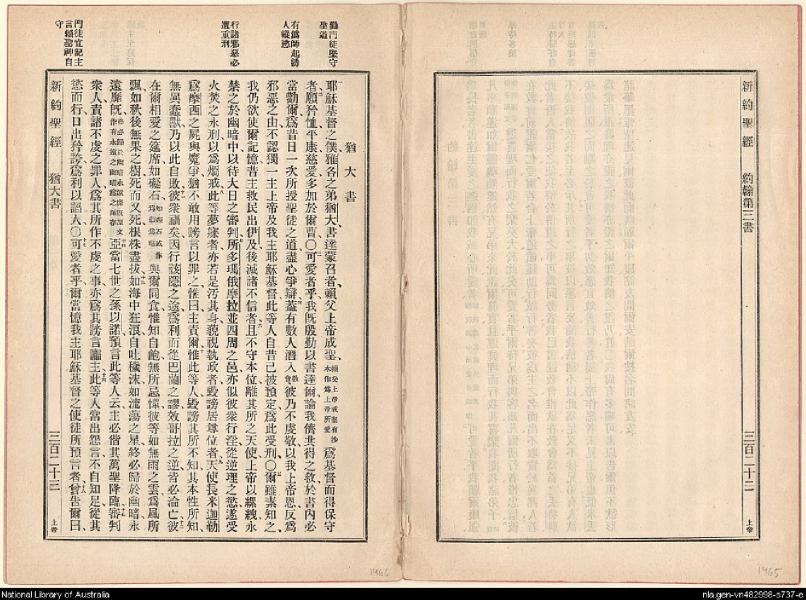 新約聖經 約翰第三書 三百二十二 上帝
猶大書
耶穌基督之僕雅各之弟猶大書達蒙召者賴父上帝成聖爲基督而得保守
者願矜恤平康慈愛多加於爾曹○可愛者乎我旣殷勤以書達爾論我儕共得之救於書內必
當勸爾爲昔日一次所授聖徒之道盡心爭辯蓋有數人潛入會彼乃不虔敬以我上帝恩反爲
邪惡之由不認獨一主上帝及我主耶穌基督此等人自昔已被預定爲此受刑○爾雖素知之
我仍欲使爾記憶昔主救民出伊及後滅諸不信者且不守本位離其所之天使上帝以縲絏永
禁之於幽暗中以待大日之審判所多瑪俄摩拉並四周之邑亦似彼衆行淫從逆理之慾遂受
火焚之永刑以爲鑑戒此等夢寐者亦若是污其身藐視執政者毀謗居尊位者天使長米迦勒
爲摩西之屍與魔爭猶不敢用謗言以罪之惟曰主責爾惟此等人毀謗其所不知其本性所知
無異蠢獸乃以此自敗彼衆禍矣因行該隱之途爲利而從巴蘭之謬效哥拉之逆皆必淪亡彼
在爾相愛之筵席如礁石與爾同食惟知自飽無所忌憚彼等如無雨之雲爲風所
飄如秋後無果之樹死而又死根株盡拔如海中狂浪自吐穢沫如流蕩之星終必歸於幽暗永
遠靡旣亞當七世之孫以諾預言此等人云主必偕其萬聖降臨審判
衆人責諸不虔之罪人爲其所作不虔之事亦爲其謗言讟主此等人常出怨言不自知足從其
慾而行口出矜誇爲利以諂人○可愛者乎爾當憶我主耶穌基督之使徒所預言者曾告爾曰
新約聖經 猶大書 三百二十三 上帝
勸門徒堅守
聖道
有僞師起誘
人縱慾
行諸邪惡必
遭重刑
門徒宜記主
言賴聖神自
守
1466
1465
National Library of Australia
nla.gen-vn482998-s737-e